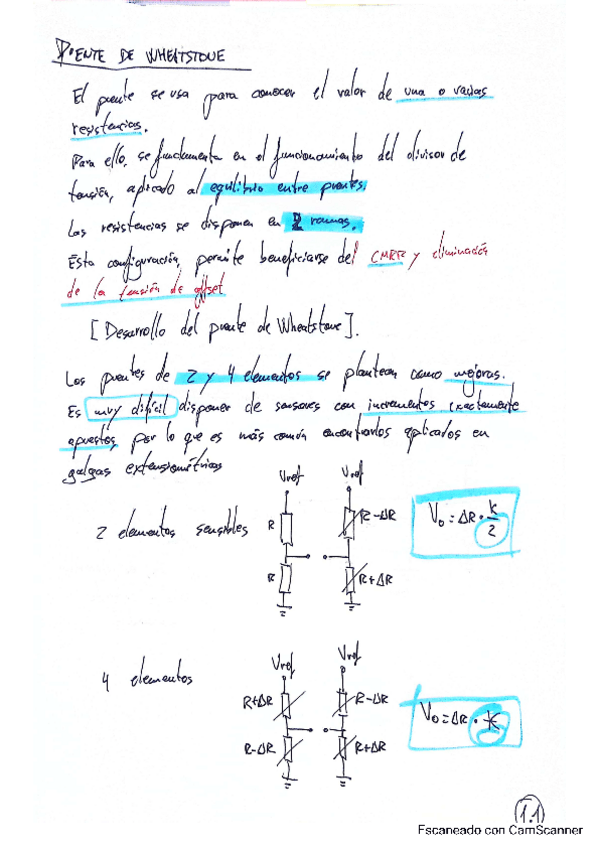 PUENTE DE WHEATSTONE
El puente se usa para conocer el valor de una o varias
resistencias.
Para ello, se fundamenta en el funcionamiento del divisor de
tensión, aplicado al equilibrio entre puentes.
Las resistencias se disponen en 2 ramas.
Esta configuración, permite beneficiarse del CMRR y eliminación
de la tensión de offset
[Desarrollo del puente de Wheatstone].
Los puentes de 2 y 4 elementos se plantean como mejoras.
Es muy difícil disponer de sensores con incrementos exactamente
opuestos por lo que es más común encontrarlos aplicados en
galgas extensiométricas
2 elementos sensibles
Vref Vref
R R-ΔR
R R+ΔR
V₀ = ΔR · K/2
4 elementos
Vref Vref
R+ΔR R-ΔR
R-ΔR R+ΔR
V₀ = ΔR · K
1.1
Escaneado con CamScanner